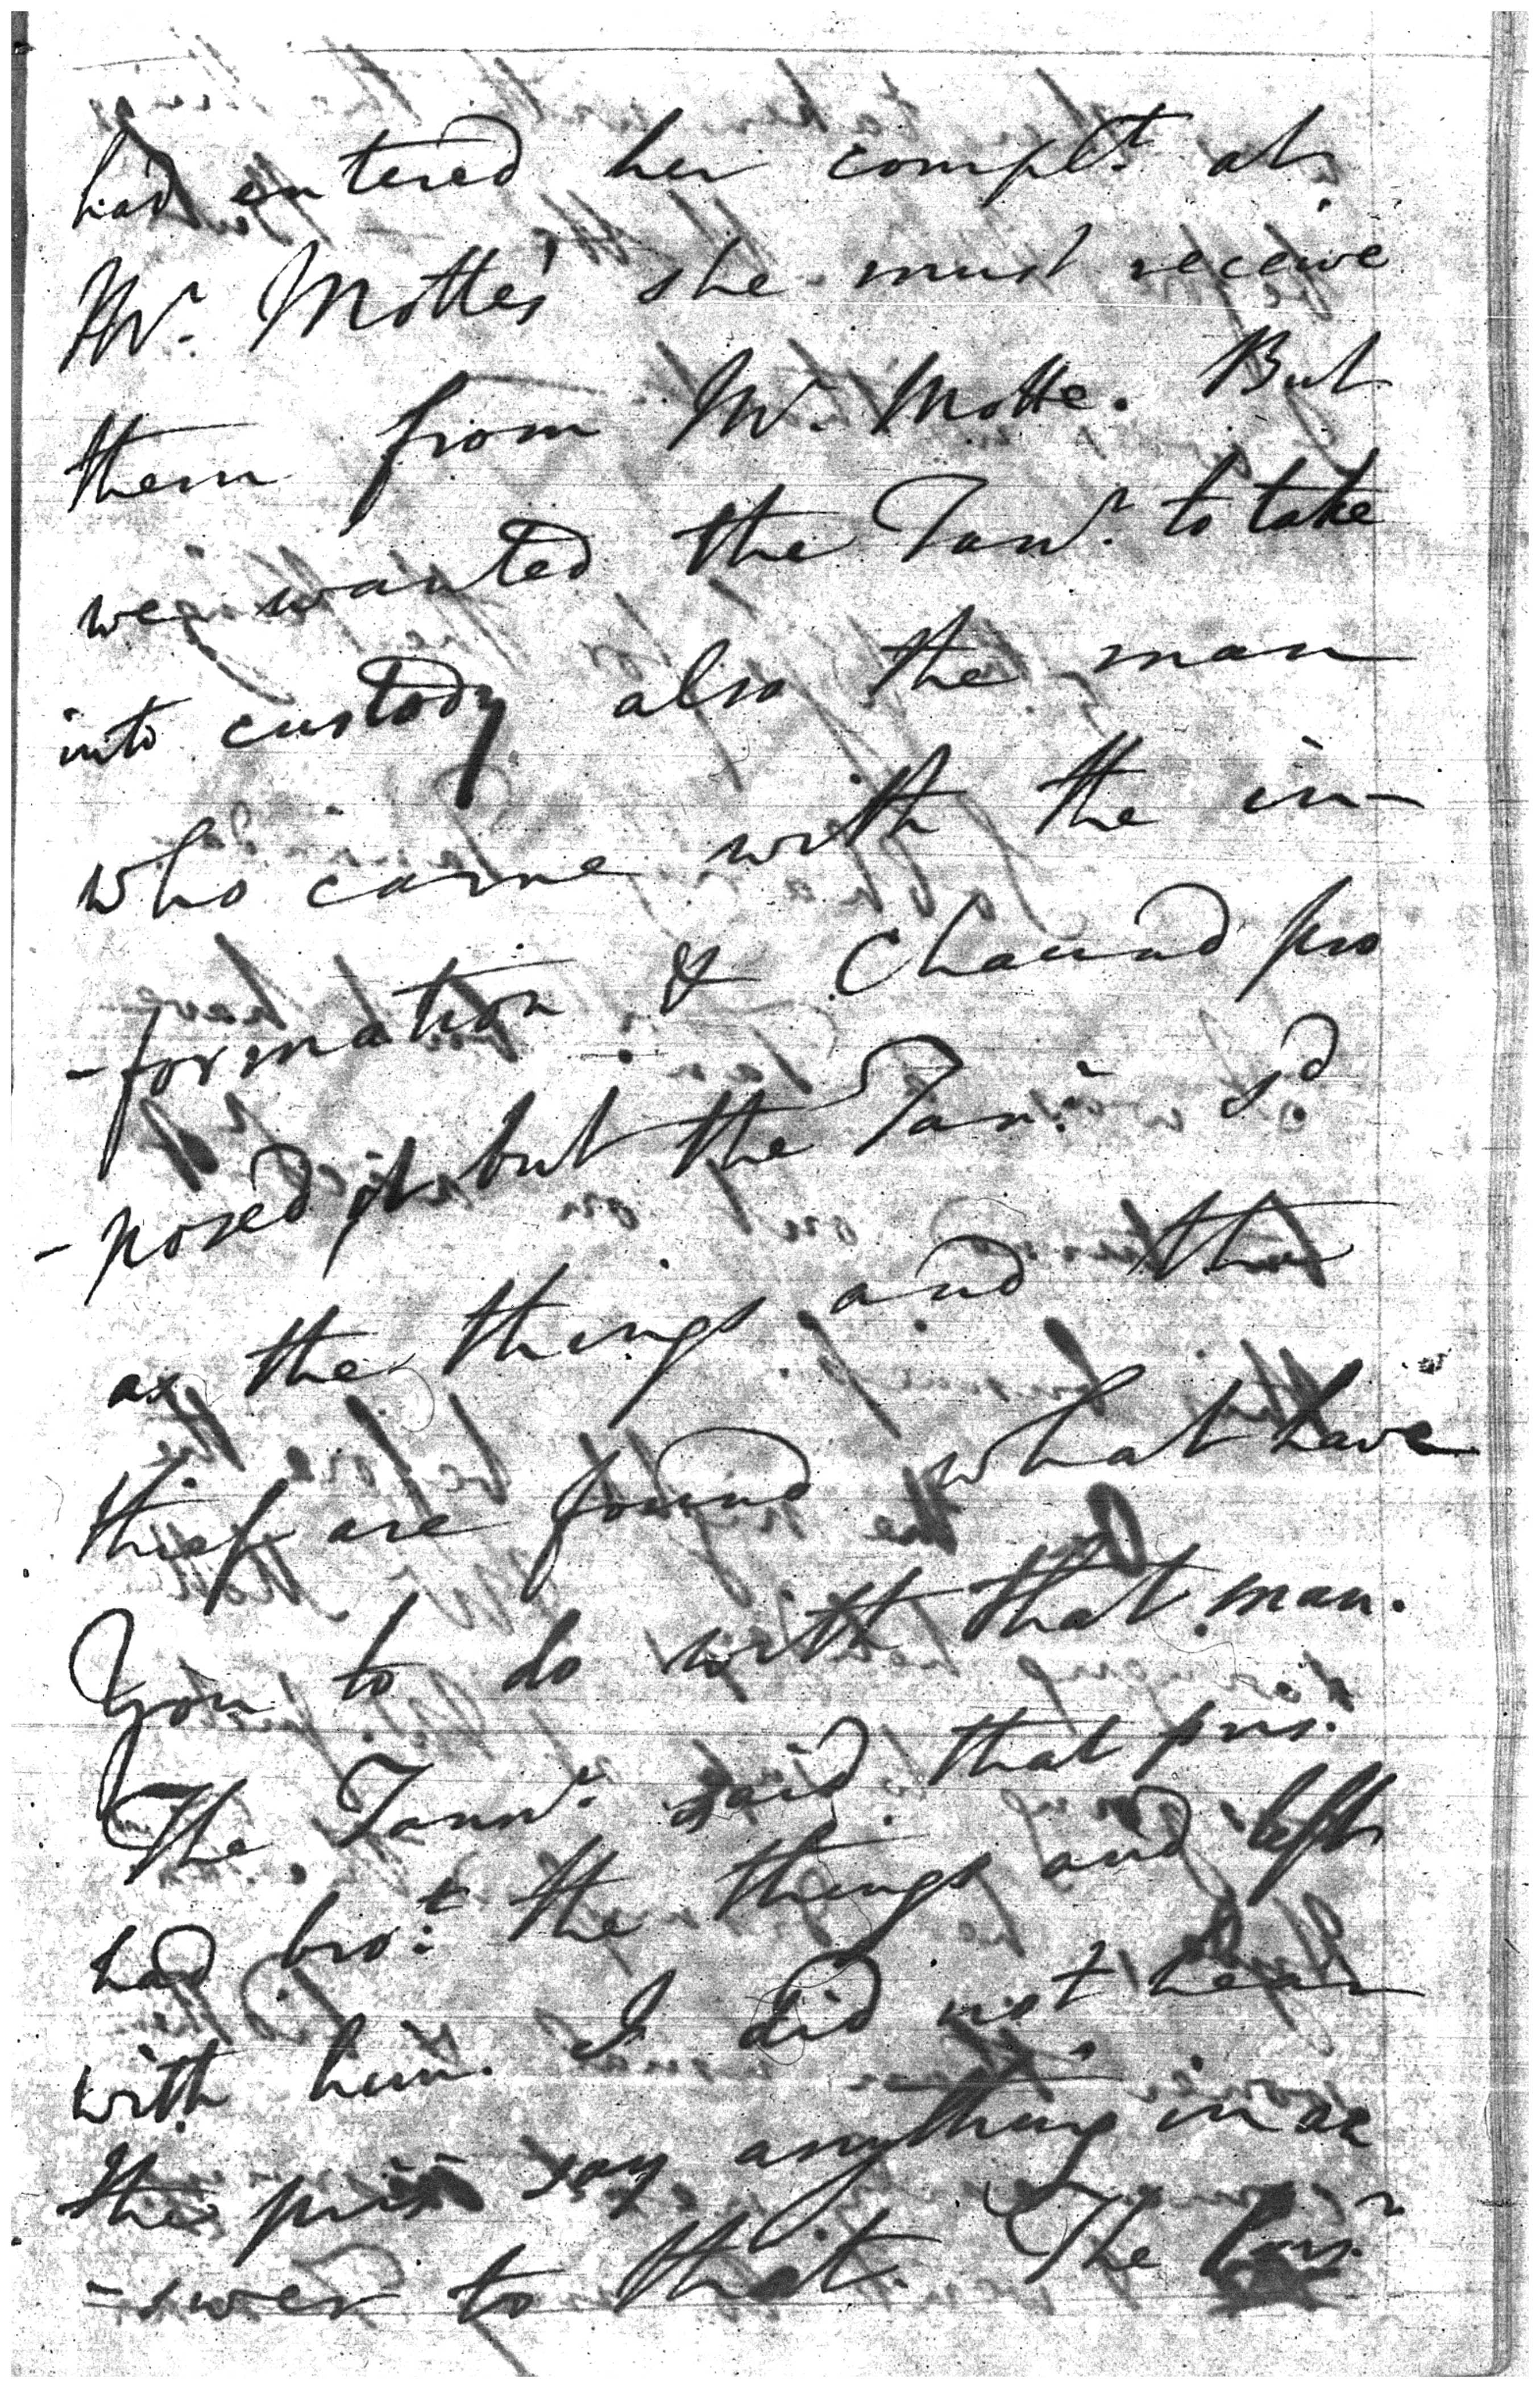 had entered her complt. at
Mr. Motte's she must receive
them from Mr. Motte. But
we wanted the Tanr. to take
into custody also the man
who came with the in-
-formation & Chaund pro
-posed it but the Tanr. sd.
as the things and the
thief are found what have
you to do with that man.
The Tannr. said that pris.
had brot. the things and left
with him. I did not hear
the prisr say anything in an
-swer to that. The Prisr.